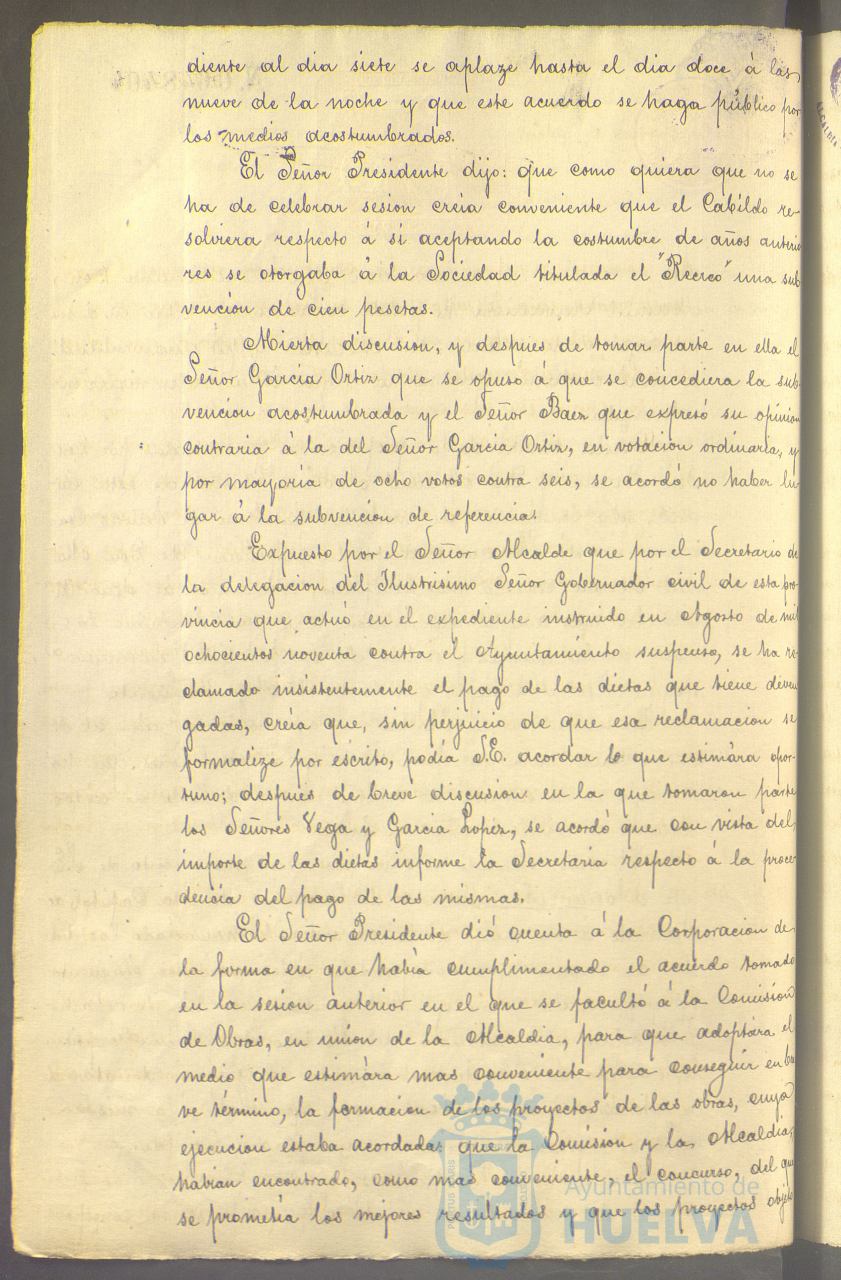 diente al dia siete se aplaze hasta el dia doce á las
nueve de la noche y que este acuerdo se haga público por
los medios acostumbrados.
El Señor Presidente dijo: que como quiera que no se
ha de celebrar sesion creia conveniente que el Cabildo re-
solviera respecto á si aceptando la costumbre de años anterio
res se otorgaba á la Sociedad titulada el "Recreo" una sub
vención de cien pesetas.
Abierta discusion, y despues de tomar parte en ella el
Señor Garcia Ortiz que se opuso á que se concediera la sub-
vencion acostumbrada y el Señor Baez que expresó su opinion
contraria á la del Señor Garcia Ortiz, en votacion ordinaria, y
por mayoría de ocho votos contra seis, se acordó no haber lu-
gar á la subvención de referencia.
Expuesto por el Señor Alcalde que por el Secretario de
la delegacion del Ilustrisimo Señor Gobernador civil de esta pro-
vincia que actuó en el expediente instruido en Agosto de mil
ochocientos noventa contra el Ayuntamiento suspenso, se ha re-
clamado insistentemente el pago de las dietas que tiene deven
gadas, creía que, sin perjuicio de que esa reclamacion se
formalize por escrito, podía S.E. acordar lo que estimára opor-
tuno; despues de breve discusion en la que tomaron parte
los Señores Vega y Garcia Lopez, se acordó que con vista del
importe de las dietas informe la Secretaria respecto á la proce-
dencia del pago de las mismas.
El Señor Presidente dió cuenta á la Corporacion de
la forma en que había cumplimentado el acuerdo tomado
en la sesion anterior en el que se facultó á la Comision
de Obras, en unión de la Alcaldia, para que adoptára el
medio que estimára mas conveniente para conseguir en bre
ve término, la formacion de los proyectos de las obras, cuya
ejecucion estaba acordada: que la Comision y la Alcaldia,
habian encontrado, como mas conveniente, el concurso, del que
se prometía los mejores resultados y que los proyectos objeto
Ayuntamiento de
HUELVA